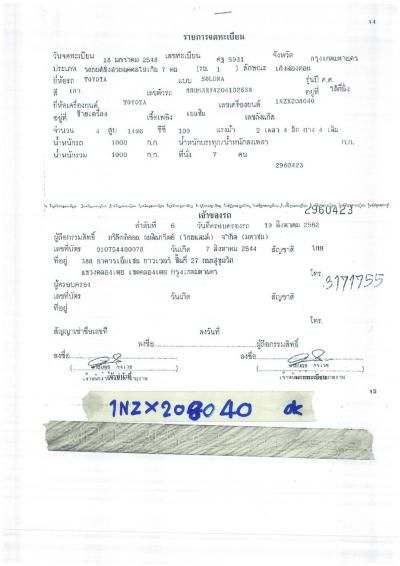 14
รายการจดทะเบียน
วันจดทะเบียน 18 มกราคม 2548 เลขทะเบียน 5931 จังหวัด กรุงเทพมหานคร
ประเภท รถยนต์นั่งส่วนบุคคลไม่เกิน 7 คน (รย. 1 ) ลักษณะ เก๋งสองตอน
ยี่ห้อรถ TOYOTA แบบ SOLUNA รุ่นปี ค.ศ.
สี เทา เลขตัวรถ อยู่ที่
ยี่ห้อเครื่องยนต์ TOYOTA เลขเครื่องยนต์ 1NZX208040
อยู่ที่ เชื้อเพลิง เบนซิน เลขถังแก๊ส
จำนวน 4 สูบ 1496 ซีซี 109 แรงม้า 2 เพลา 4 ล้อ ยาง 4 เส้น
น้ำหนักรถ 1000 ก.ก. น้ำหนักบรรทุก/น้ำหนักลงเพลา ก.ก.
น้ำหนักรวม 1000 ก.ก. ที่นั่ง 7 คน
2960423
2960423
เจ้าของรถ
ลำดับที่ 6 วันที่ครอบครองรถ 19 สิงหาคม 2562
ผู้ถือกรรมสิทธิ์ จำกัด (มหาชน)
เลขที่บัตร 010754400078 วันเกิด 7 สิงหาคม 2544 สัญชาติ ไทย
ที่อยู่ 388 อาคารเอ็กเชน ทาวเวอร์ ชั้นที่ 27 ถนนสุขุมวิท
แขวงคลองเตย เขตคลองเตย กรุงเทพมหานคร โทร. 3171755
ผู้ครอบครอง
เลขที่บัตร วันเกิด สัญชาติ
ที่อยู่
โทร.
สัญญาเช่าซื้อเลขที่ ลงวันที่
ลงชื่อ ผู้ถือกรรมสิทธิ์
ลงชื่อ ลงชื่อ
15
1NZX208040 ok